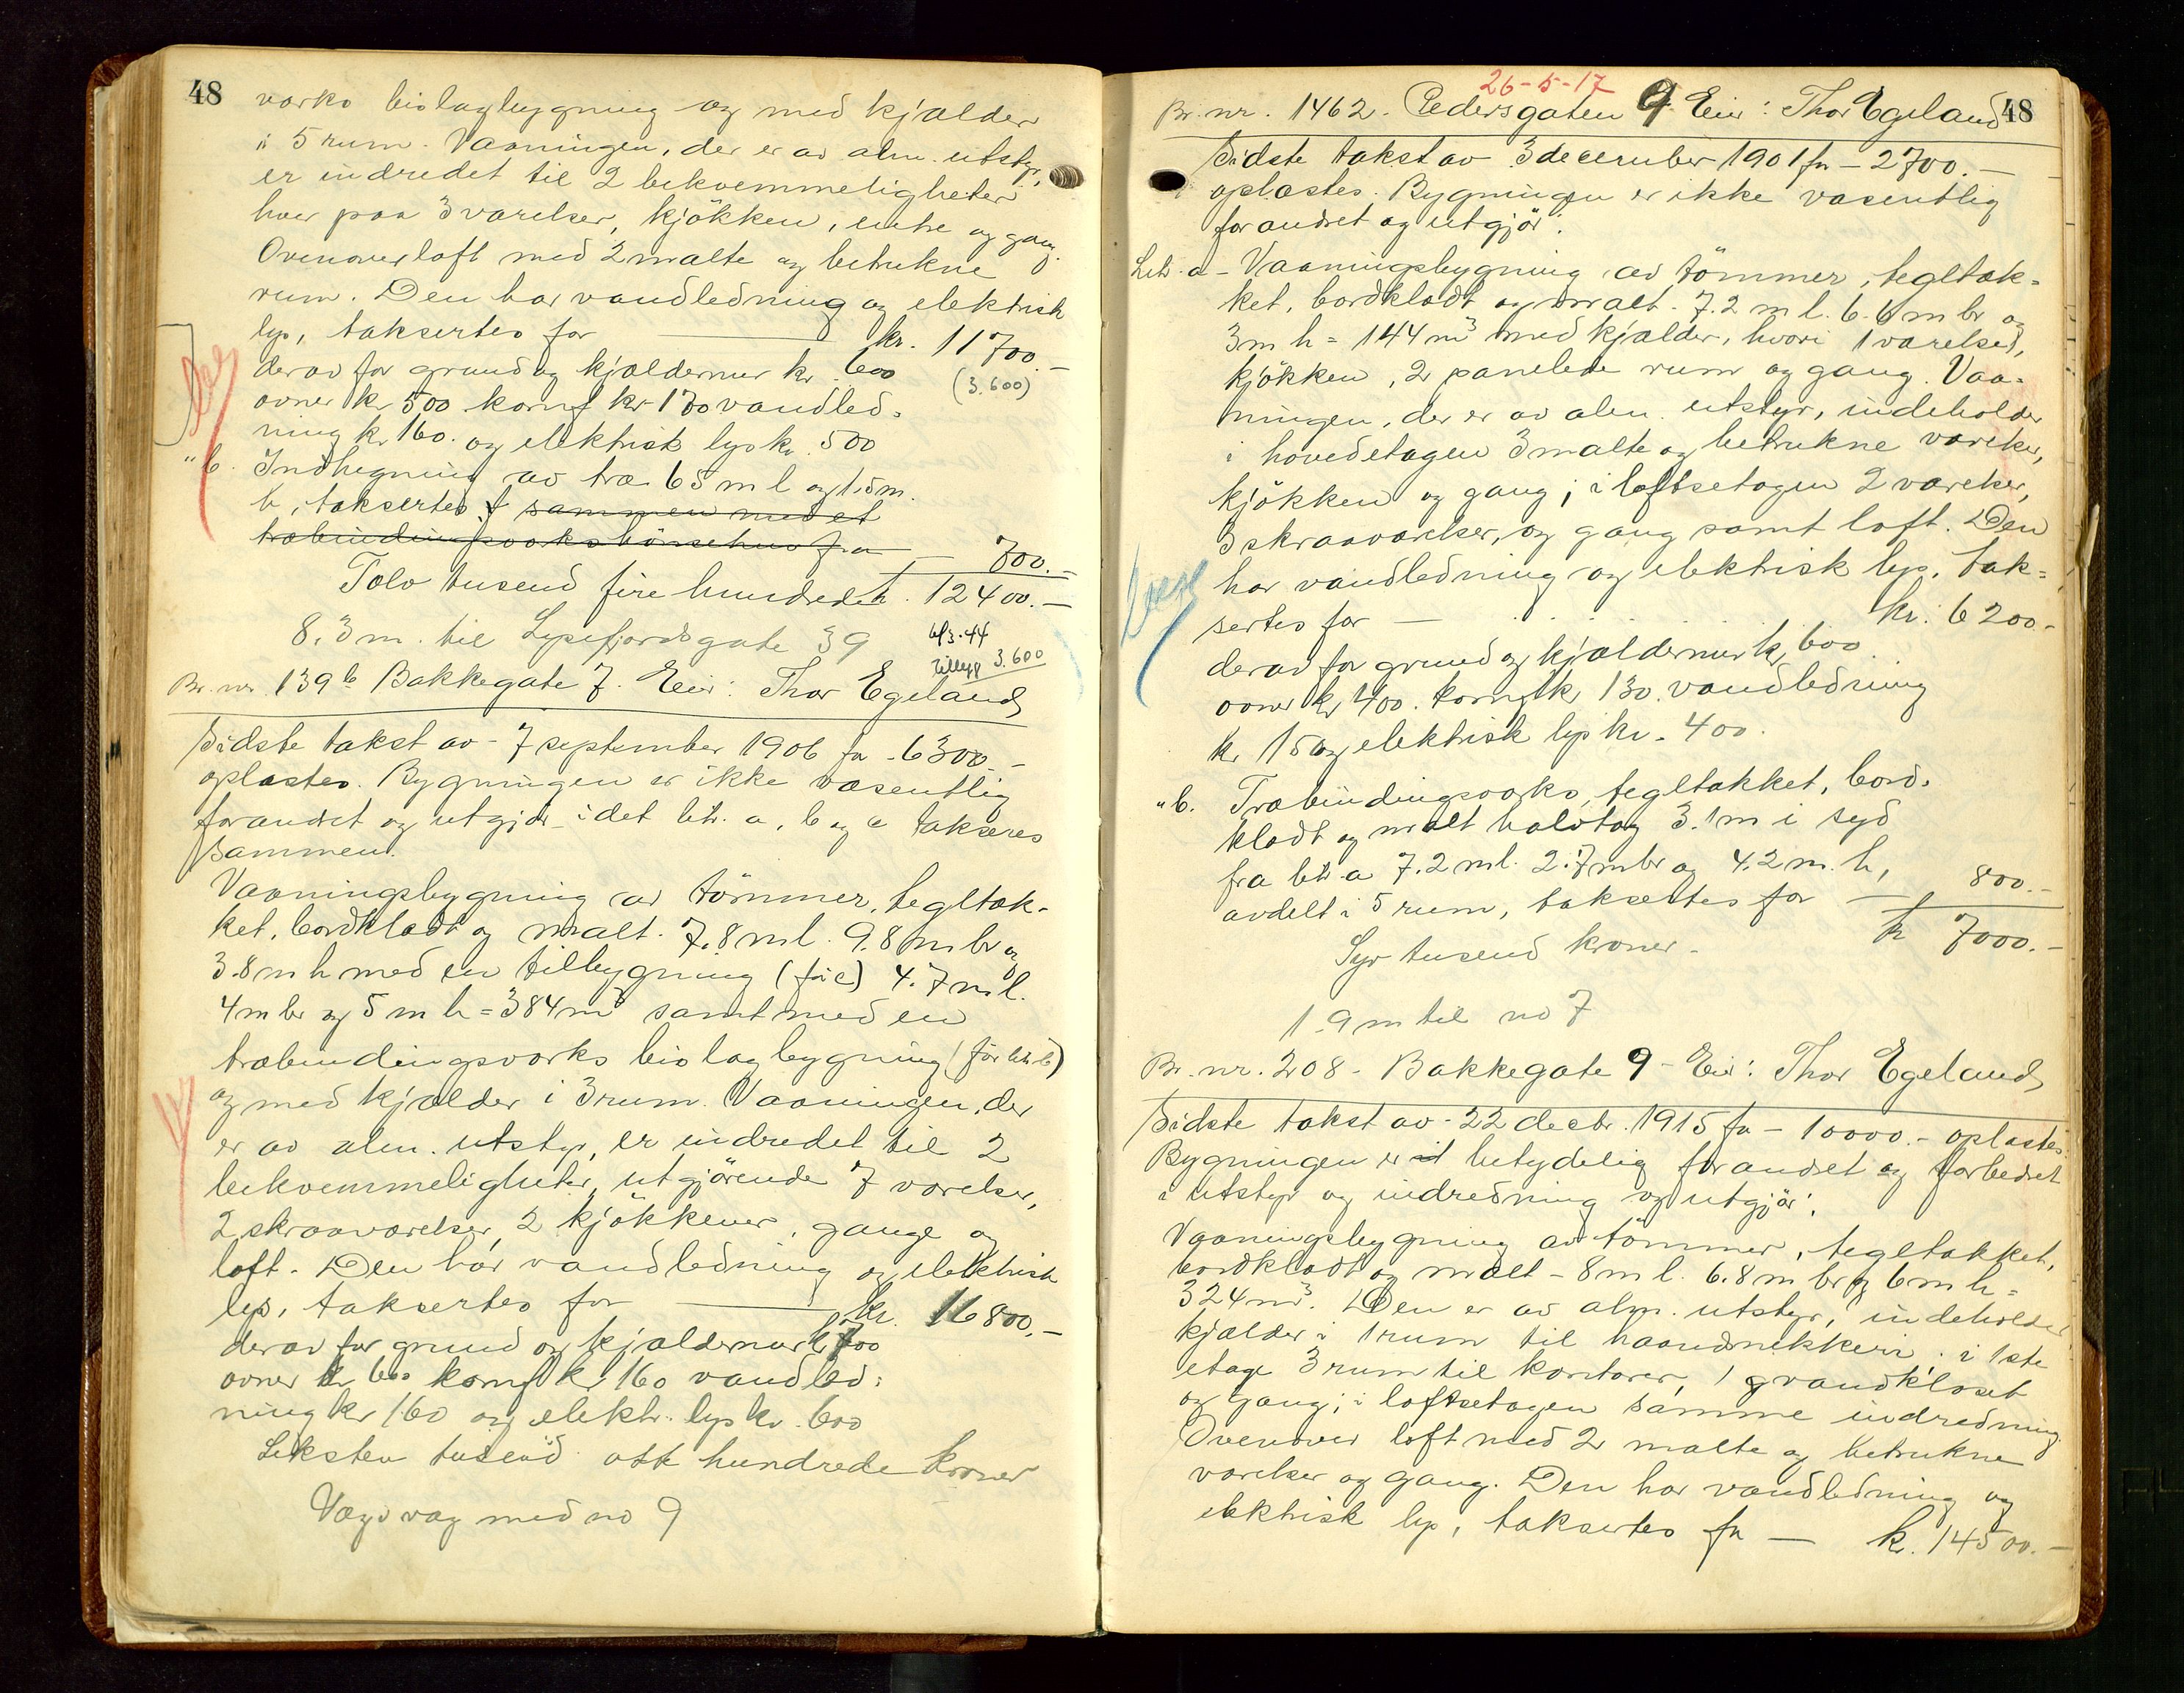 48
værks bislagbygning og med kjælder
i 5 rum. Vaaningen, der er av alm. utstyr,
er indredet til 2 bekvemmeligheter
hver paa 3 værelser, kjökken, entre og gang.
Ovenover loft med 2 malte og betrukne
rum. Den har vandledning og elektrisk
lys, taksertes for — kr. 11700.-
derav for grund og kjældermur kr. 600 (3.600)
ovner kr 500 komf kr 130 vandled-
ning kr 160. og elektrisk lys kr. 500
" b. Indhegning av træ 65 m l og 1.5 m.
h, taksertes f sammen med et
træbindingsværks hönsehus for — 700.-
Tolv tusend fire hundrede kr. 12400.-
8.3 m. til Lysefjordsgate 39
6/3-44
Tillegg 3.600
Br. nr. 139b Bakkegate 7. Eier: Thor Egeland
Sidste takst av 7 september 1906 for 6300.-
oplæstes. Bygningen er ikke væsentlig
forandret og utgjör idet litr. a, b og c takseres
sammen.
Vaaningsbygning av tömmer, tegltæk-
ket, bordklædt og malt. 7.8 m l. 9.8 m br og
3.8 m h med en tilbygning (för c) 4.7 m l.
4 m br og 5 m h = 384 m³ samt med en
træbindingsværks bislagbygning (för litr. b)
og med kjælder i 3 rum. Vaaningen, der
er av alm. utstyr, er indredet til 2
bekvemmeligheter, utgjörende 7 værelser,
2 skraaværelser, 2 kjökkener, gange og
loft. Den har vandledning og elektrisk
lys, taksertes for — kr. 16800.-
derav for grund og kjældermur kr 700
ovner kr 600 komf kr 160 vandled-
ning kr 160 og elektr. lys kr. 600
Seksten tusend ott hundrede kroner
Væg i væg med no 9
26-5-17
48
Br. nr. 1462. Pedersgaten 9 Eier: Thor Egeland
Sidste takst av 3 december 1901 for - 2700.-
oplæstes. Bygningen er ikke væsentlig
forandret og utgjör:
Litr. a - Vaaningsbygning av tömmer, tegltæk-
ket, bordklædt og malt. 7.2 m l. 6.6 m br og
3 m h = 144 m³ med kjælder, hvori 1 værelse,
kjökken, 2 panelede rum og gang. Vaa-
ningen, der er av alm. utstyr, indeholder
i hovedetagen 3 malte og betrukne værelser,
kjökken og gang; i loftsetagen 2 værelser,
3 skraaværelser, og gang samt loft. Den
har vandledning og elektrisk lys, tak-
sertes for — kr. 6200.-
derav for grund og kjældermur kr 600
ovner kr 400. komf kr 130. vandledning
kr 150 og elektrisk lys kr. 400.
" b. Træbindingsværks, tegltækket, bord-
klædt og malt halvtag 3.1 m i syd
fra litr. a 7.2 m l. 2.7 m br og 4.2 m. h,
avdelt i 5 rum, taksertes for — 800.-
Syv tusend kroner. kr 7000.-
1.9 m til no 7
Br. nr. 208 - Bakkegate 9 - Eier: Thor Egeland
Sidste takst av 22 decbr. 1915 for - 10000.- oplæstes
Bygningen er betydelig forandret og forbedret
i utstyr og indredning og utgjör:
Vaaningsbygning av tömmer, tegltækket,
bordklædt og malt - 8 m l. 6.8 m br og 6 m h =
324 m³. Den er av alm. utstyr, indeholder
kjælder i 1 rum til haandsnekkeri; i 1ste
etage 3 rum til kontorer, 1 vandkloset
og gang; i loftsetagen samme indredning.
Ovenover loft med 2 malte og betrukne
værelser og gang. Den har vandledning og
elektrisk lys, taksertes for — kr. 14500.-